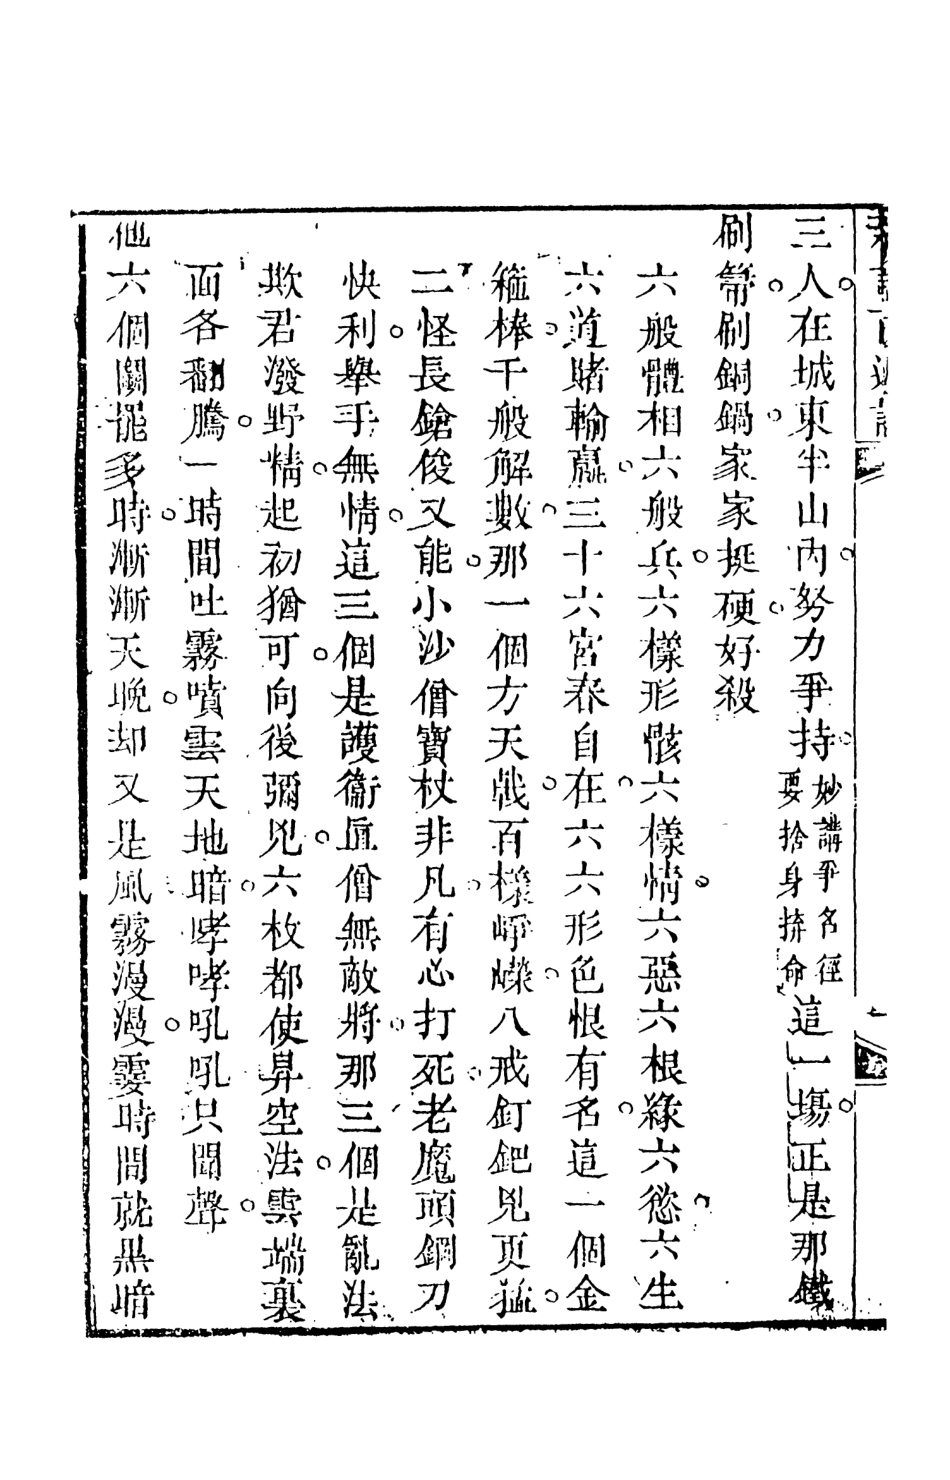 三人在城東半山內努力爭持妙講爭名徑要捨身拚命這一塲正是那鐵
刷箒刷銅鍋家家挺硬好殺
六般體相六般兵六樣形骸六樣情六惡六根綠六慾六生
六道賭輸贏三十六宮春自在六六形色恨有名這一個金
箍棒千般解數那一個方天戟百樣崢嶸八戒釘鈀兇更猛
二怪長鎗俊又能小沙僧寶杖非凡有心打死老魔頭鋼刀
快利舉手無情這三個是護衞眞僧無敵將那三個是亂法
欺君潑野精起初猶可向後彌兇六枚都使昇空法雲端裏
面各翻騰一時間吐霧噴雲天地暗哮哮吼吼只聞聲
他六個鬭罷多時漸漸天晚却又是風霧漫漫霎時間就黑暗